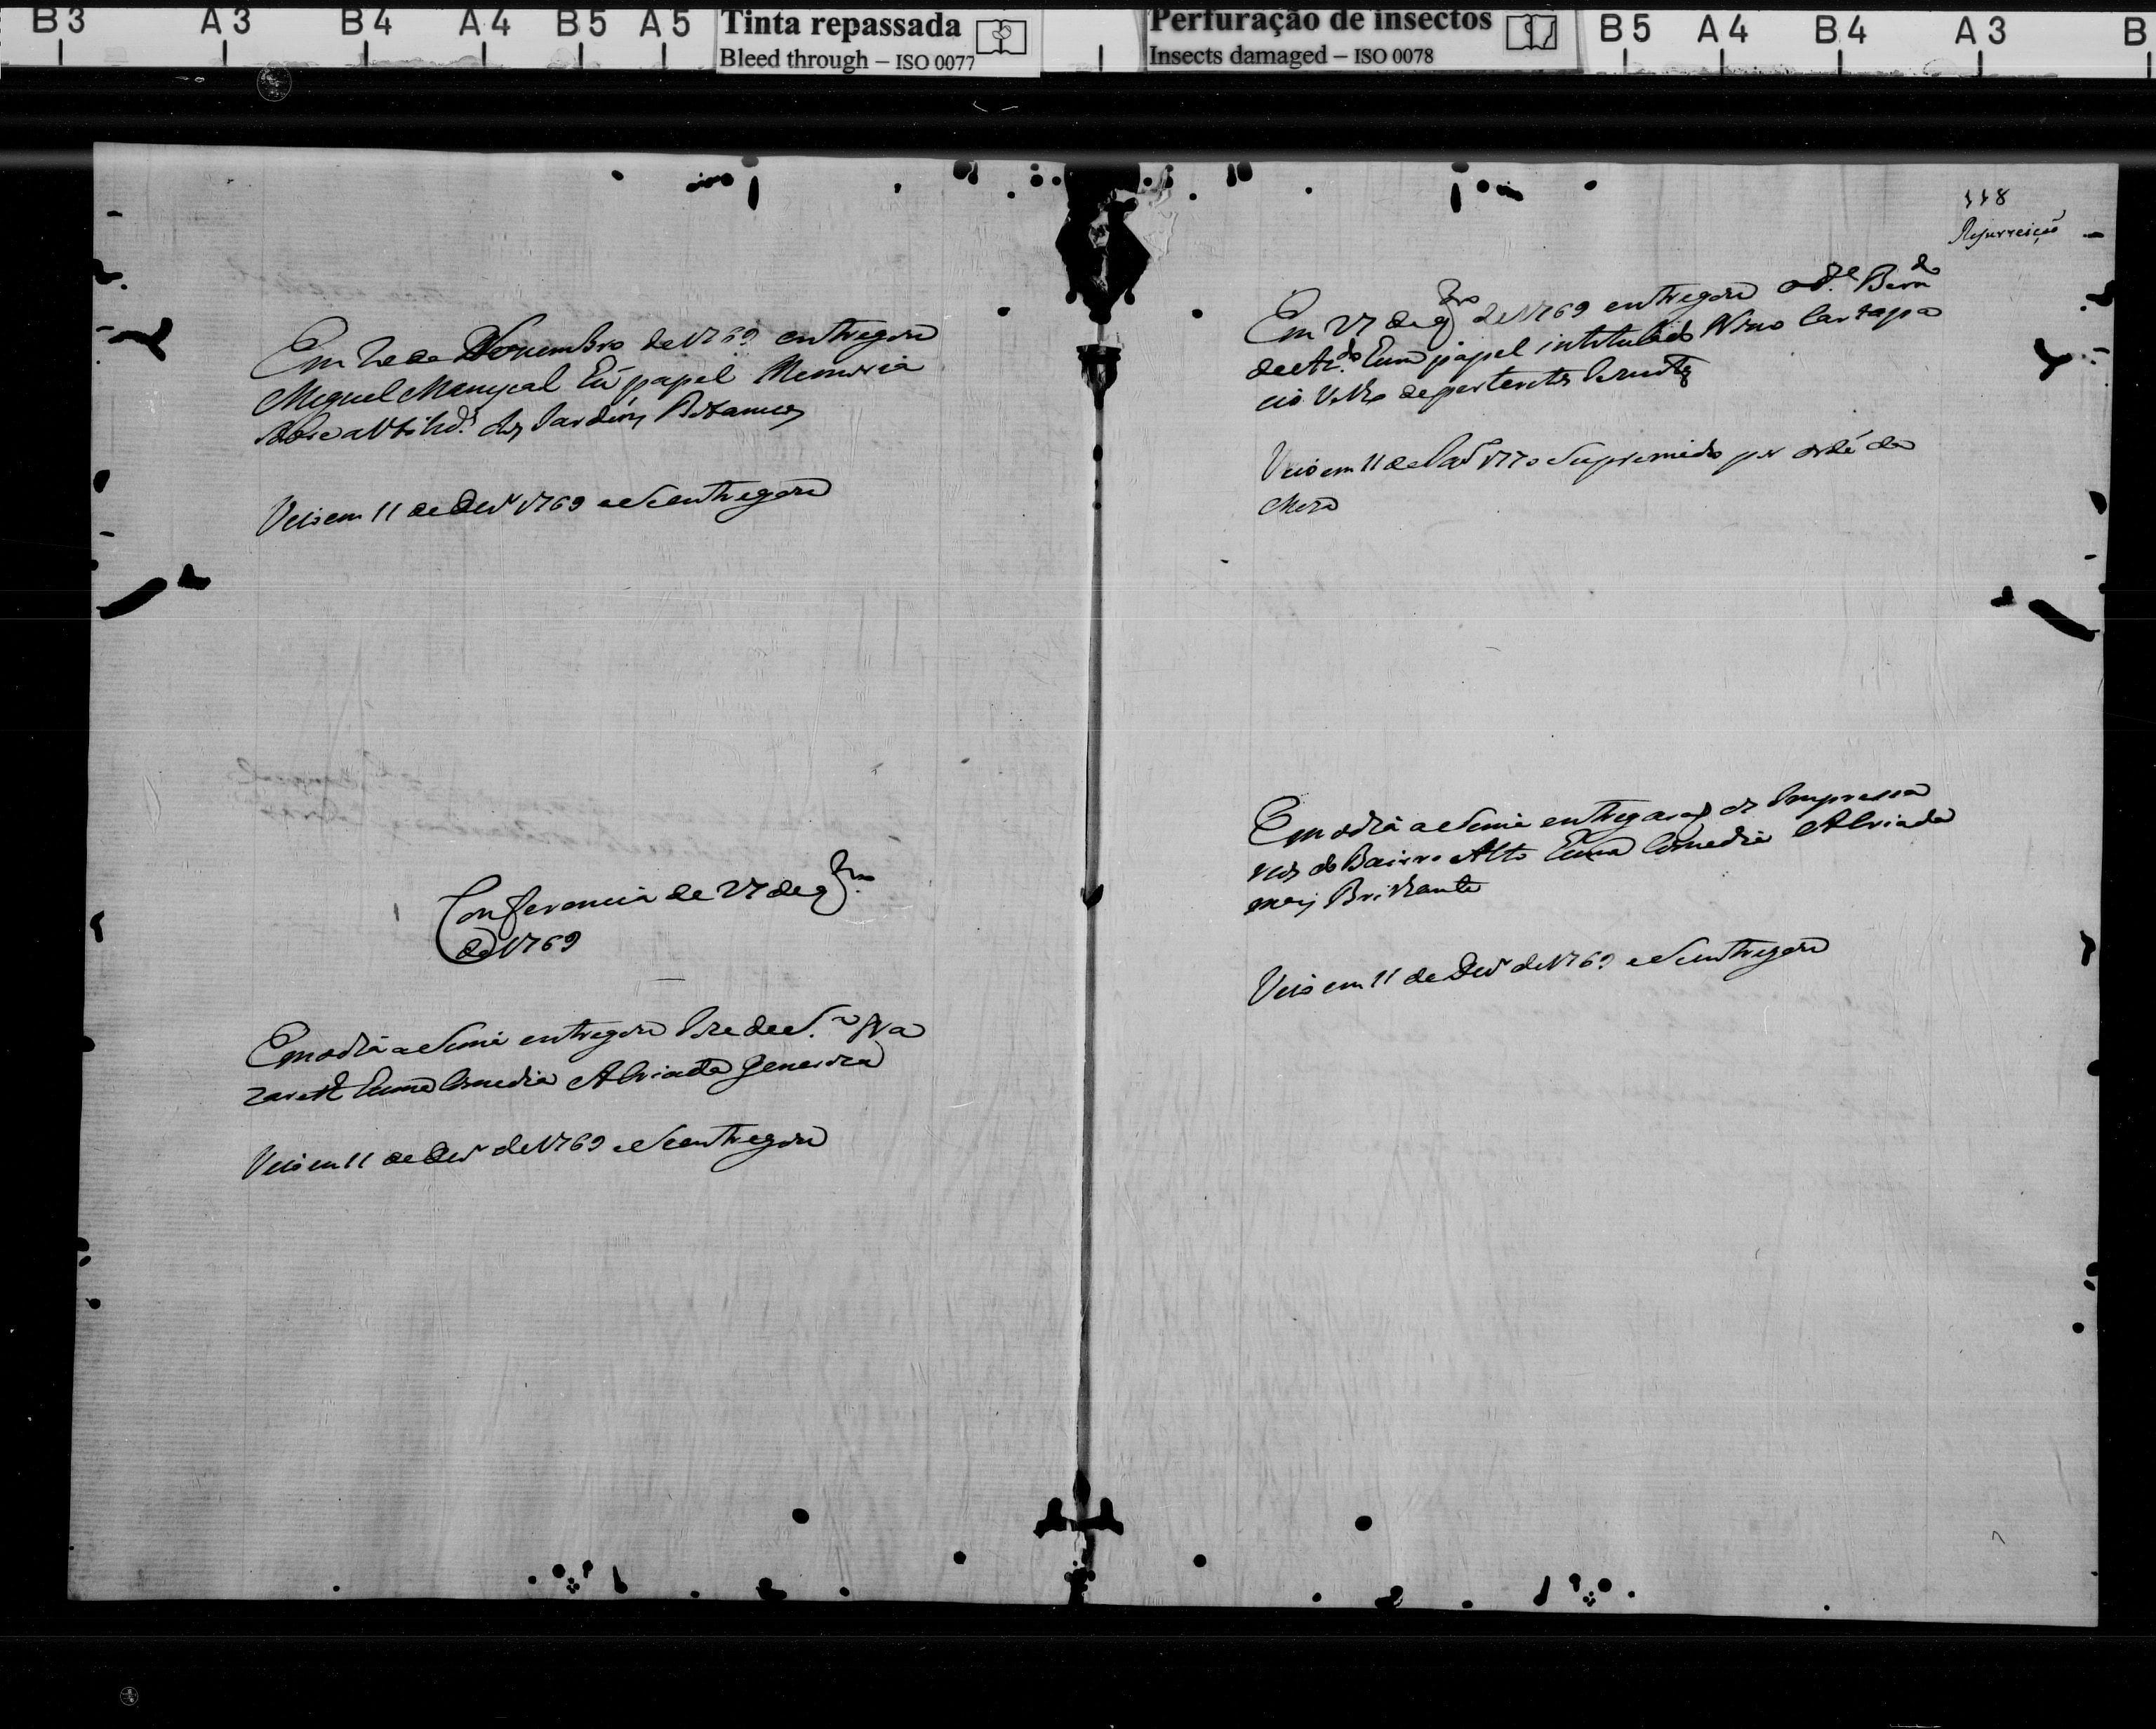 B3 A3 B4 A4 B5 A5
Tinta repassada
Bleed through – ISO 0077
Perfuração de insectos
Insects damaged – ISO 0078
B5 A4 B4 A3 B
Em de Novembro de 1769 entregou
Miguel Manescal hũ papel Memoria
sobre a Utilid.e dos Jardins Botanicos
Veio em 11 de Dezº 1769 e Se entregou
Conferencia de 27 de 9bro
de 1769
Em o dia a Sima entregou Joze de
zareth huma Comedia A Criada generoza
Veio em 11 de Dezº de 1769 e Se entregou
118
Resurreição
Em 27 de 9bro de 1769 entregou o Pe Berndo
de hum papel intitulado Novo Cartapa
cio
Veio em 11 de 1770 Supremido por ordẽ da
Meza
Em o dia a Sima entregarão os Impressa
rios do Bairro Alto huma Comedia A Criada
mais Brilhante
Veio em 11 de Dezº de 1769 e Se entregou